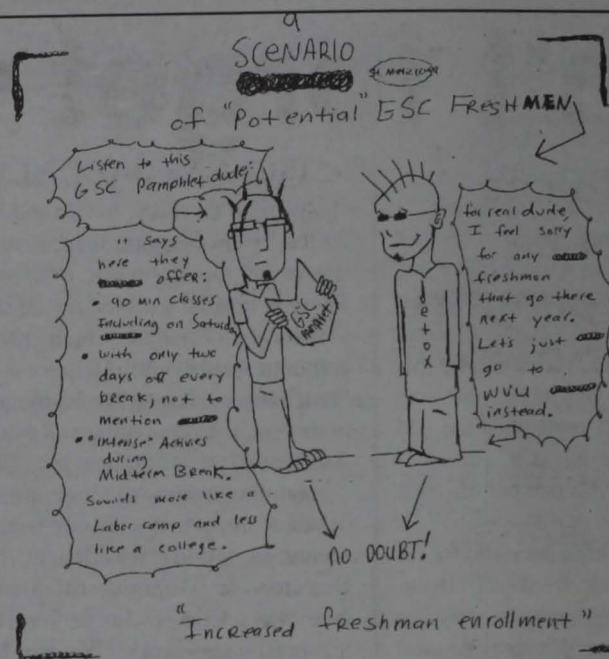 a
SCENARIO
of "Potential" GSC FRESHMEN
Listen to this
GSC Pamphlet dude:
it says
here they
offer:
• 90 min classes
Including on Saturday
• with only two
days off every
break, not to
mention
• "intense" Activies
during
Midterm Break.
Sounds more like a
Labor camp and less
like a college.
GSC
PAMPHLET
Detox
for real dude,
I feel sorry
for any
freshman
that go there
next year.
Let's just
go to
WVU
instead.
NO DOUBT!
"Increased freshman enrollment"